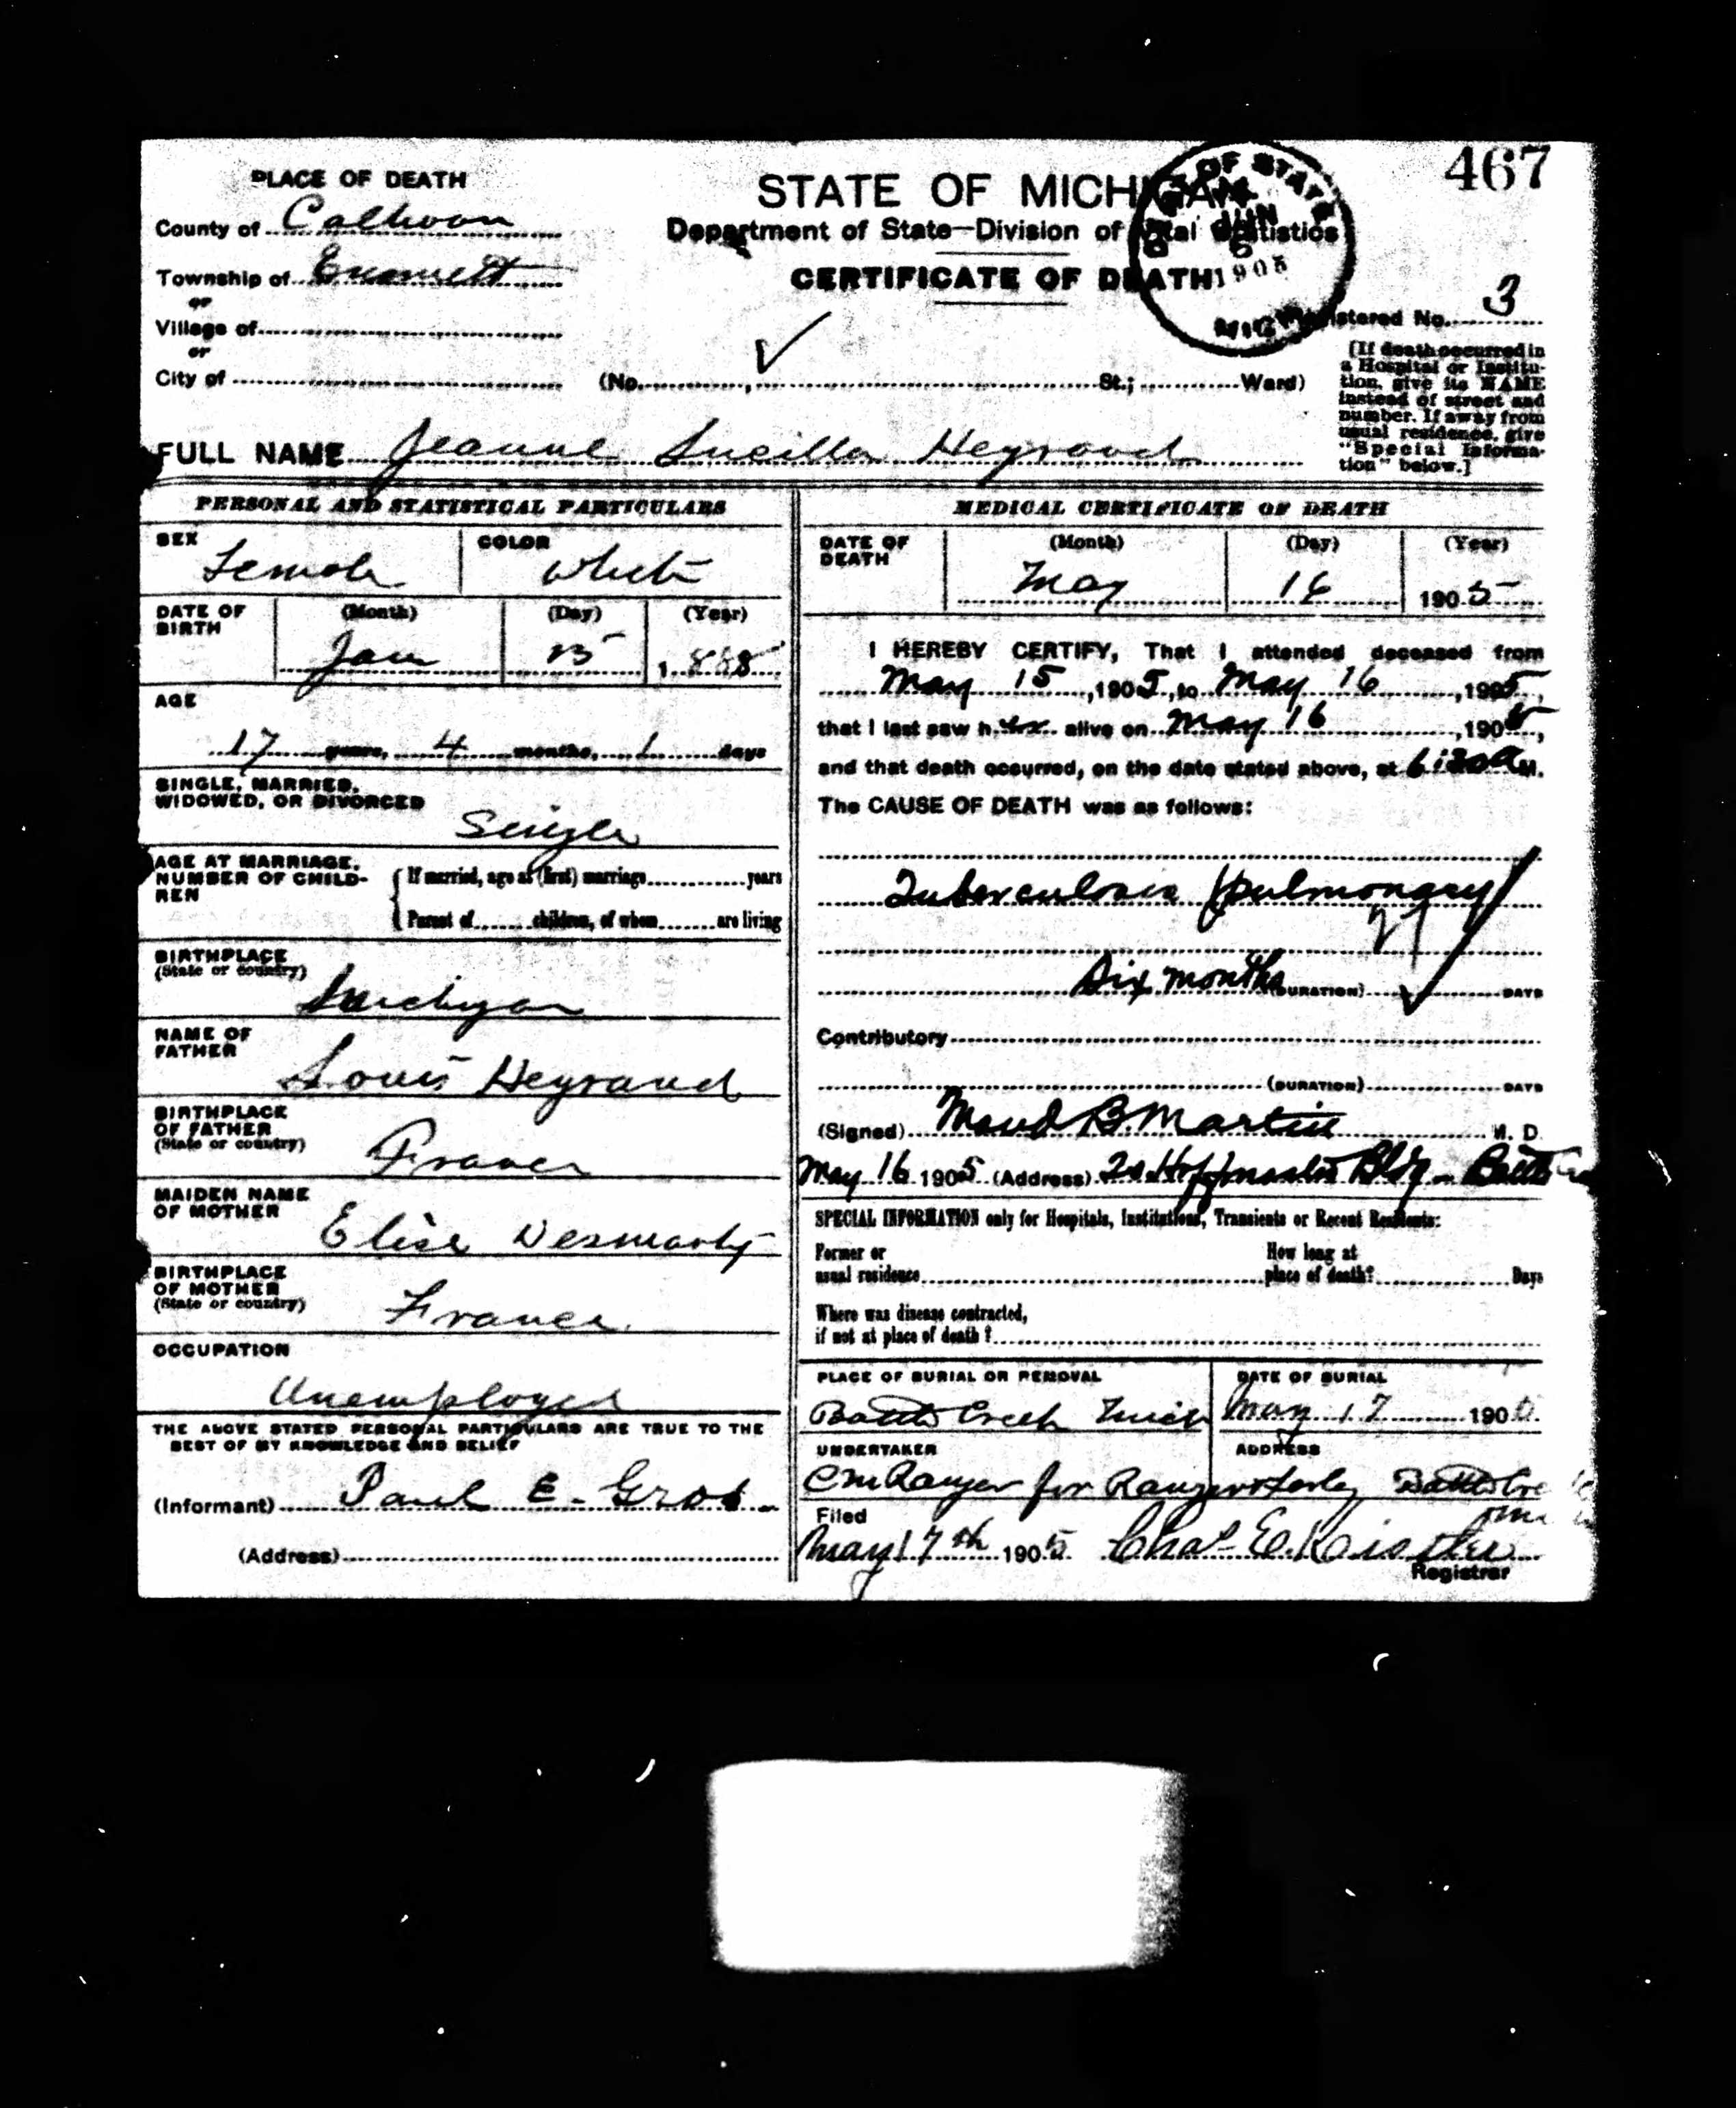 467
PLACE OF DEATH
County of Calhoun
Township of Emmett
or
Village of
or
City of
STATE OF MICHIGAN
Department of State—Division of Vital Statistics
CERTIFICATE OF DEATH
OF STATE
JUN
1905
MICH
Registered No. 3
(No. , St.; Ward)
[If death occurred in
a Hospital or Institu-
tion, give its NAME
instead of street and
number. If away from
usual residence, give
"Special Informa-
tion" below.]
FULL NAME Jeanne Lucilla Heyraud
PERSONAL AND STATISTICAL PARTICULARS
SEX Female
COLOR White
DATE OF BIRTH
(Month) (Day) (Year)
Jan 15 1888
AGE
17 years, 4 months, 1 days
SINGLE, MARRIED,
WIDOWED, OR DIVORCED
Single
AGE AT MARRIAGE,
NUMBER OF CHILD-
REN
If married, age at (first) marriage years
Parent of children, of whom are living
BIRTHPLACE
(State or country)
Michigan
NAME OF
FATHER
Louis Heyraud
BIRTHPLACE
OF FATHER
(State or country)
France
MAIDEN NAME
OF MOTHER
Elise Desmarty
BIRTHPLACE
OF MOTHER
(State or country)
France
OCCUPATION
Unemployed
THE ABOVE STATED PERSONAL PARTICULARS ARE TRUE TO THE
BEST OF MY KNOWLEDGE AND BELIEF
(Informant) Paul E. Gros
(Address)
MEDICAL CERTIFICATE OF DEATH
DATE OF
DEATH
(Month) (Day) (Year)
May 16 1905
I HEREBY CERTIFY, That I attended deceased from
May 15, 1905, to May 16, 1905,
that I last saw h er alive on May 16, 1905,
and that death occurred, on the date stated above, at 6:30 a M.
The CAUSE OF DEATH was as follows:
Tuberculosis (pulmonary)
Six months (DURATION) DAYS
Contributory
(DURATION) DAYS
(Signed) Maud B. Martin M. D.
May 16 1905 (Address) Hoffmaster Bldg - Battle
SPECIAL INFORMATION only for Hospitals, Institutions, Transients or Recent Residents:
Former or
usual residence
How long at
place of death? Days
Where was disease contracted,
if not at place of death?
PLACE OF BURIAL OR REMOVAL
Battle Creek Mich
DATE OF BURIAL
May 17 190
UNDERTAKER
C M Ranger for Ranger
ADDRESS
Battle Cre
Filed
May 17th 1905 Chas E. Kistler
Registrar